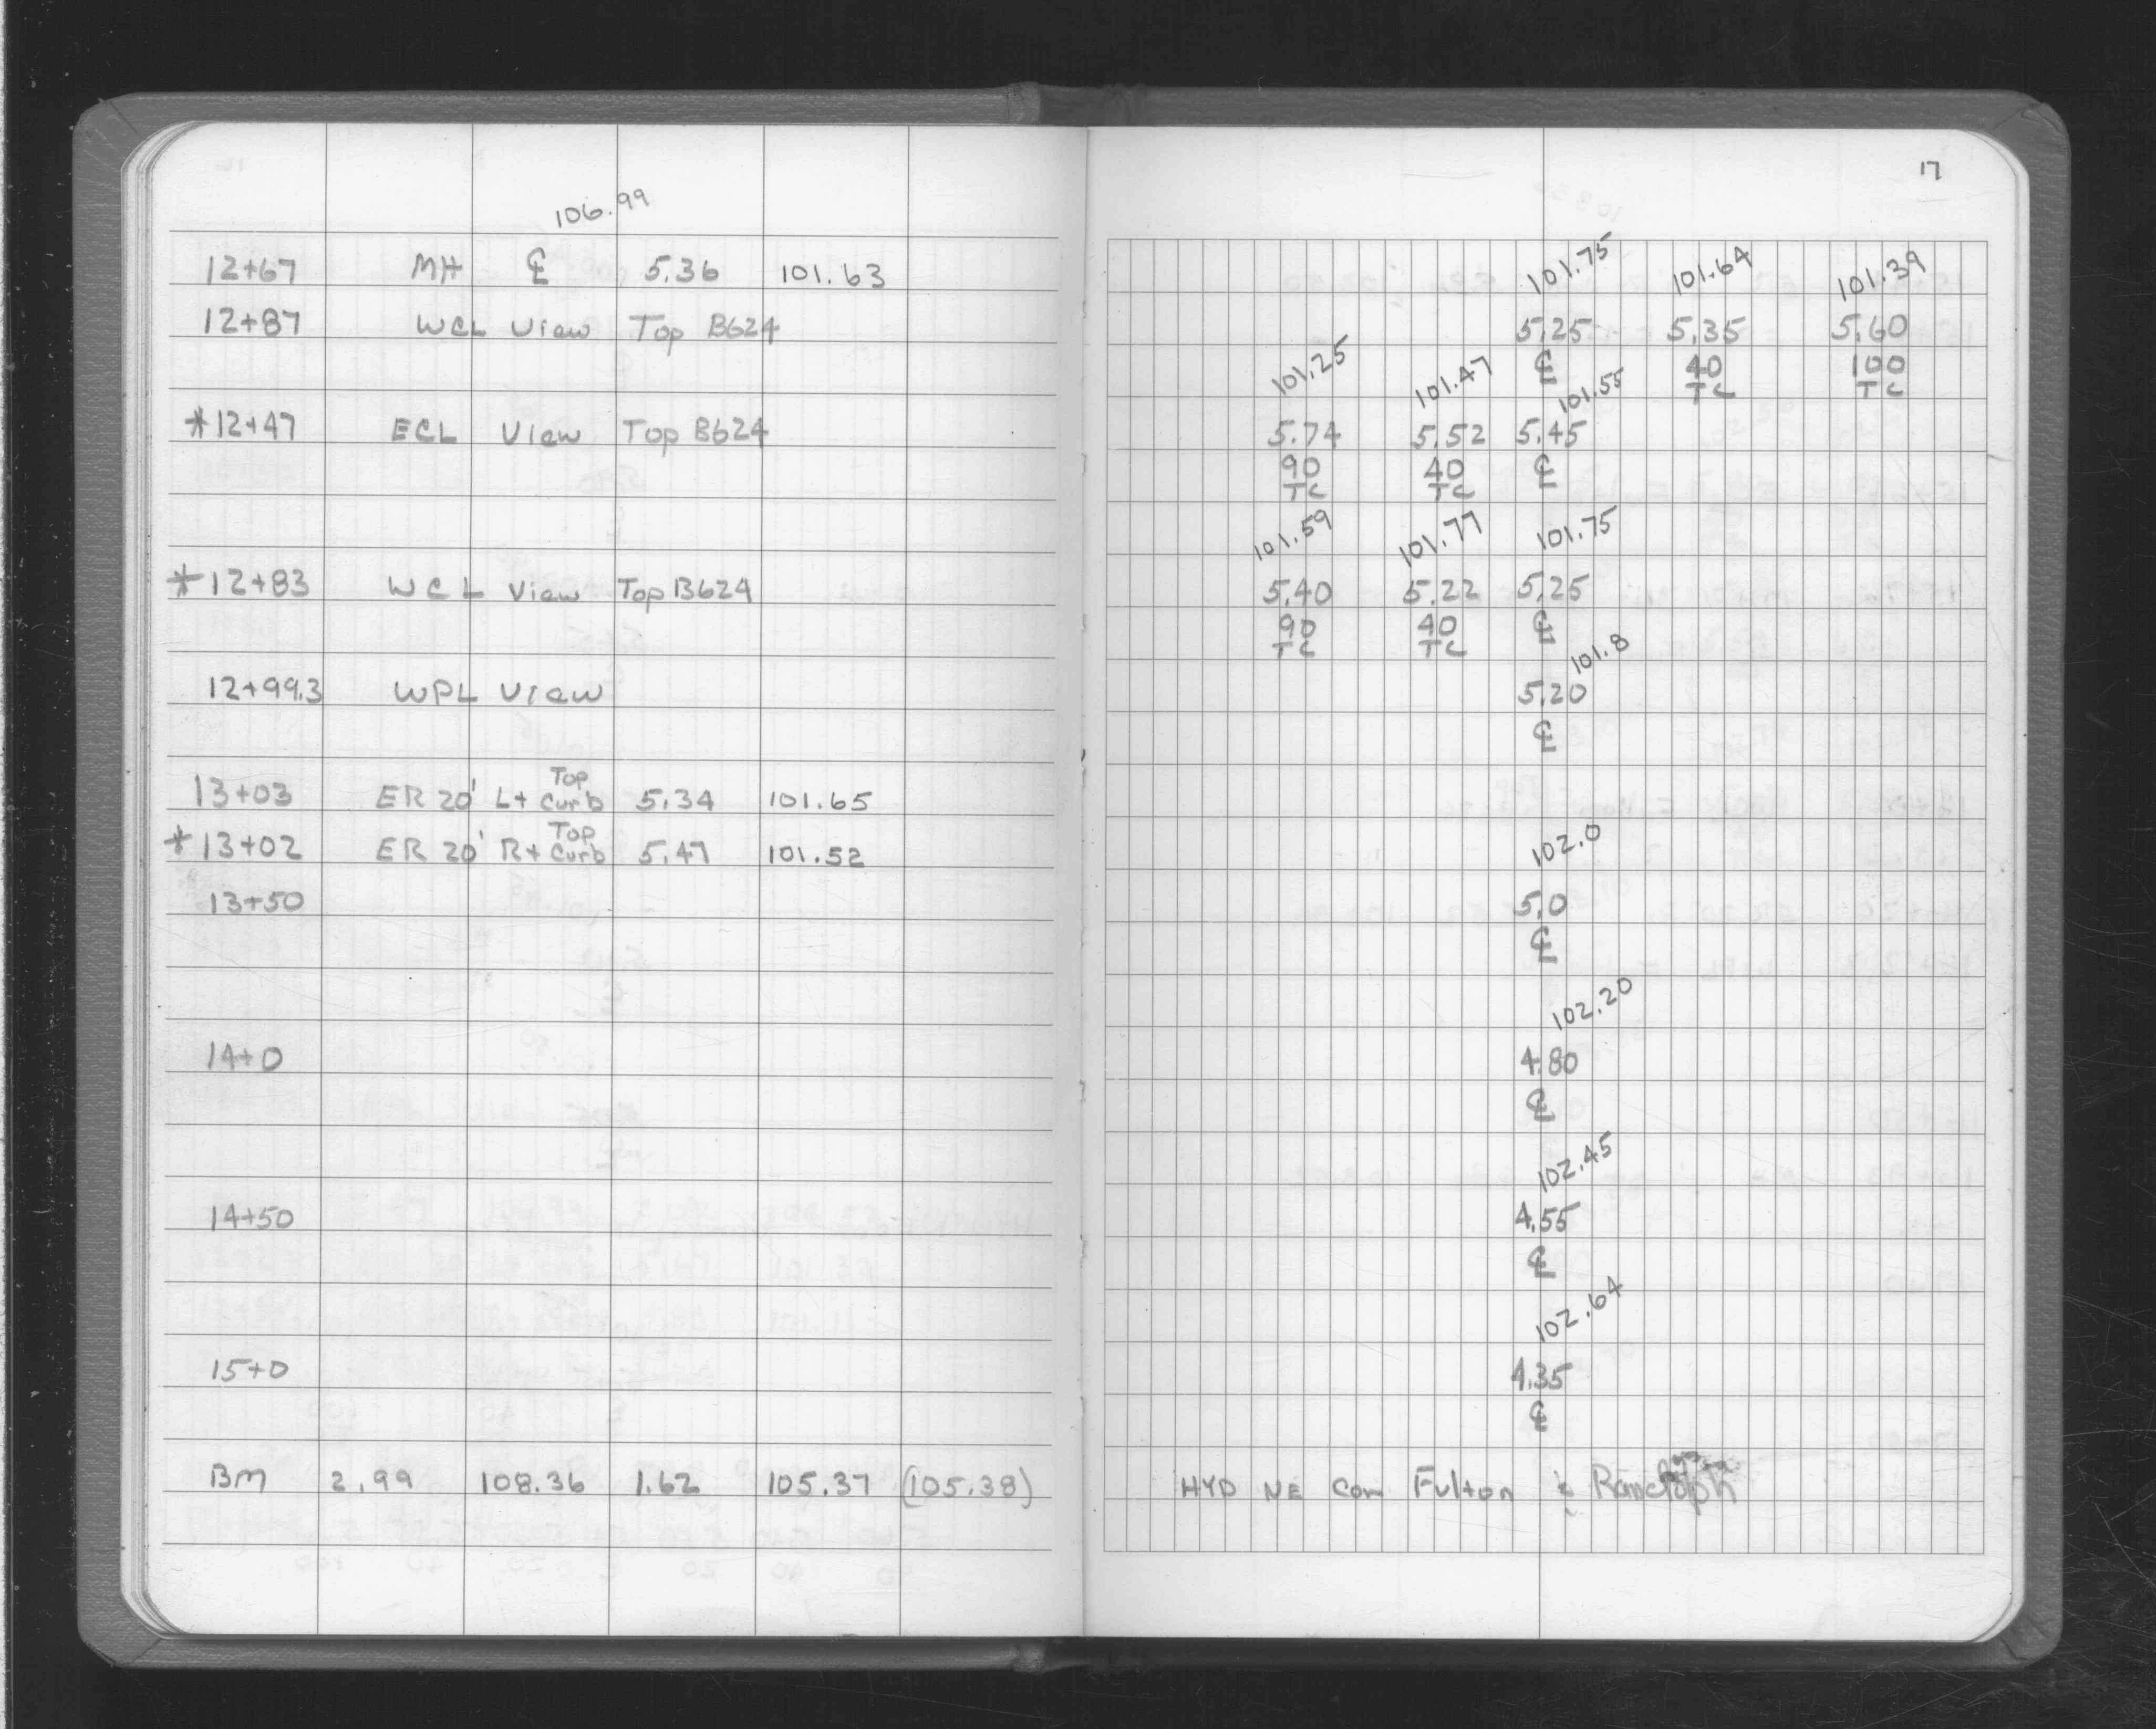 17
106.99
12+67 MH ℄ 5.36 101.63
101.75 101.64 101.39
12+87 WCL View Top B624 5.25 5.35 5.60
℄ 40 100
TC TC
101.25 101.47 101.55
*12+47 ECL View Top B624 5.74 5.52 5.45
90 40 ℄
TC TC
101.59 101.77 101.75
*12+83 WCL View Top B624 5.40 5.22 5.25
90 40 ℄
TC TC
101.8
12+99.3 WPL View 5.20
℄
13+03 ER 20' Lt Top Curb 5.34 101.65
*13+02 ER 20' Rt Top Curb 5.47 101.52
102.0
13+50 5.0
℄
102.20
14+0 4.80
℄
102.45
14+50 4.55
℄
102.64
15+0 4.35
℄
BM 2.99 108.36 1.62 105.37 (105.38) HYD NE Cor Fulton & Randolph